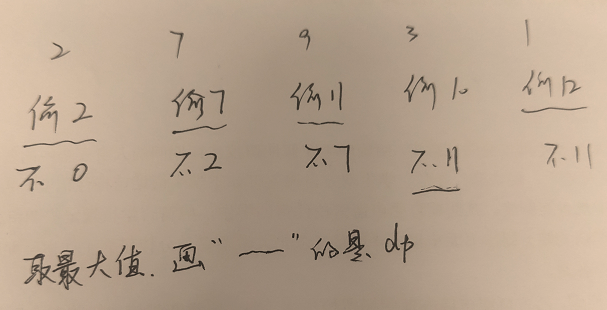 2 7 9 3 1
偷2 偷7 偷11 偷10 偷12
不0 不2 不7 不11 不11
取最大值.画“—”的是dp